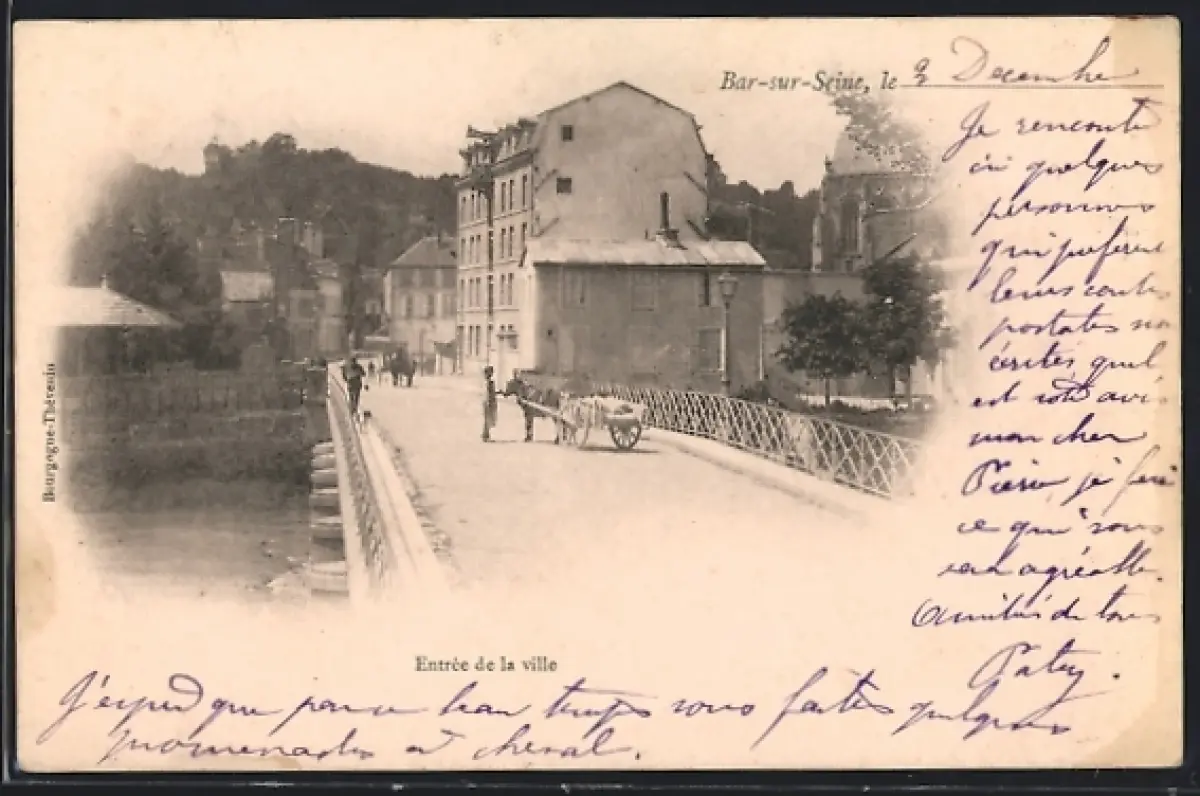 Bar-sur-Seine, le 2 Decembre
Je rencontre
ici quelques
personnes
qui préfèrent
leurs cartes
postales non
écrites, quel
est votre avis
mon cher
je ferai
ce qui vous
sera agréable.
Amitiés de tous
Bourgogne-Thévenin
Entrée de la ville
J'espère que par ce beau temps vous faites quelques
promenades à cheval.